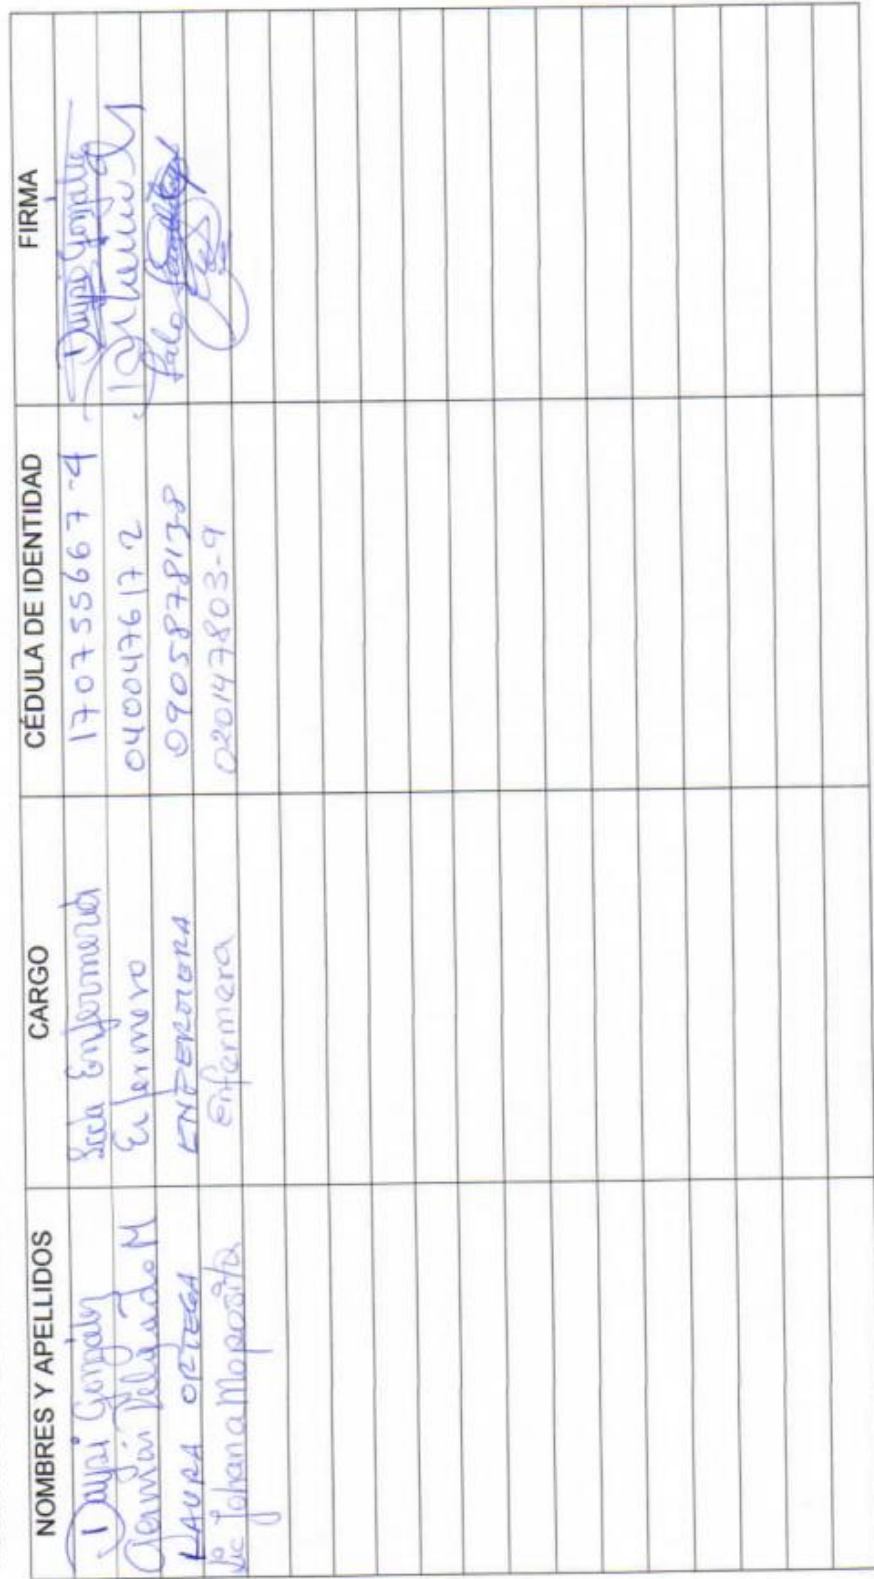 NOMBRES Y APELLIDOS CARGO CÉDULA DE IDENTIDAD FIRMA
Daysi González Enfermera 170755667-4 Daysi González
Germán Delgado M Enfermero 0400476172
LAURA ORTEGA 0905878138
Lic Johana Moposita Enfermera 020147803-9